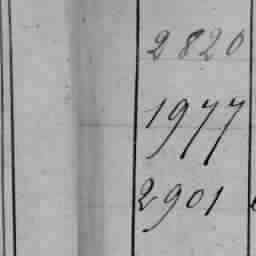 2820
1977
2901